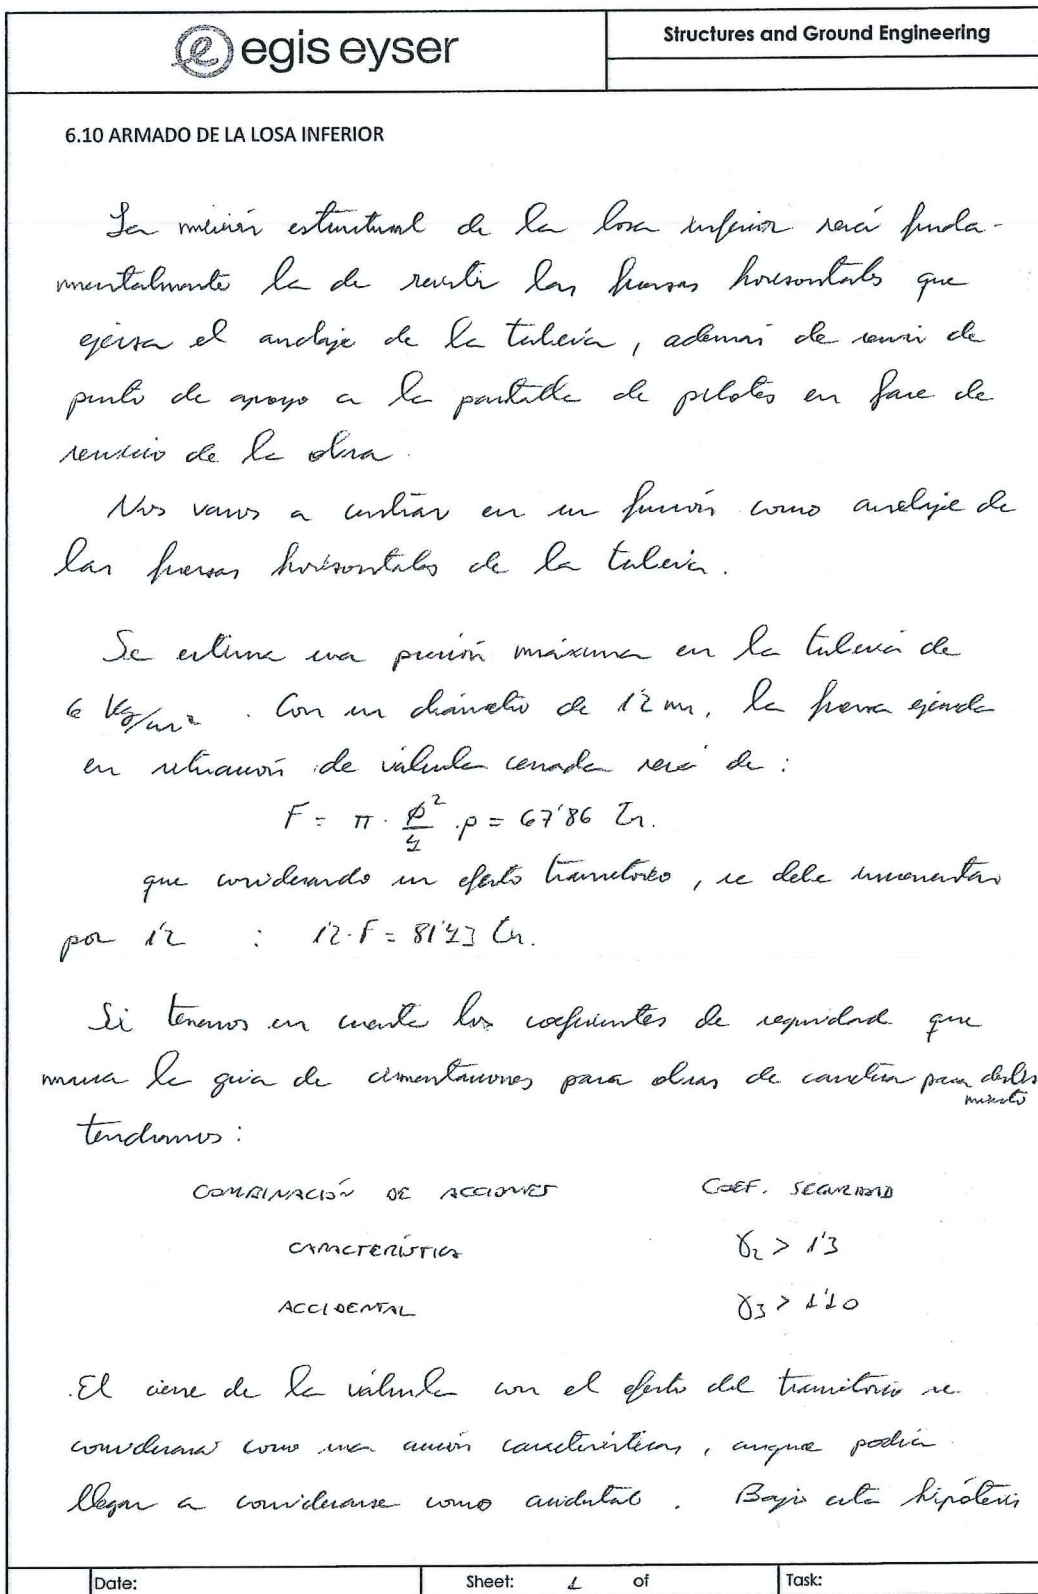 egis eyser
Structures and Ground Engineering
6.10 ARMADO DE LA LOSA INFERIOR
La misión estructural de la losa inferior será funda-
mentalmente la de resistir las fuerzas horizontales que
ejerza el anclaje de la tubería, además de servir de
punto de apoyo a la pantalla de pilotes en fase de
servicio de la obra.
Nos vamos a centrar en su función como anclaje de
las fuerzas horizontales de la tubería.
Se estima una presión máxima en la tubería de
6 Kg/cm². Con un diámetro de 1'2 m, la fuerza ejercida
en situación de válvula cerrada será de:
F = π · ø²/4 · p = 67'86 Tn.
que considerando un efecto transitorio, se debe incrementar
por 1'2 : 1'2·F = 81'43 Tn.
Si tenemos en cuenta los coeficientes de seguridad que
marca la guía de cimentaciones para obras de carretera para desliz
amiento
tendremos:
COMBINACIÓN DE ACCIONES COEF. SEGURIDAD
CARACTERÍSTICA γ2 > 1'3
ACCIDENTAL γ3 > 1'10
El cierre de la válvula con el efecto del transitorio se
considerará como una acción característica, aunque podría
llegar a considerarse como accidental. Bajo esta hipótesis
Date: Sheet: 1 of Task: